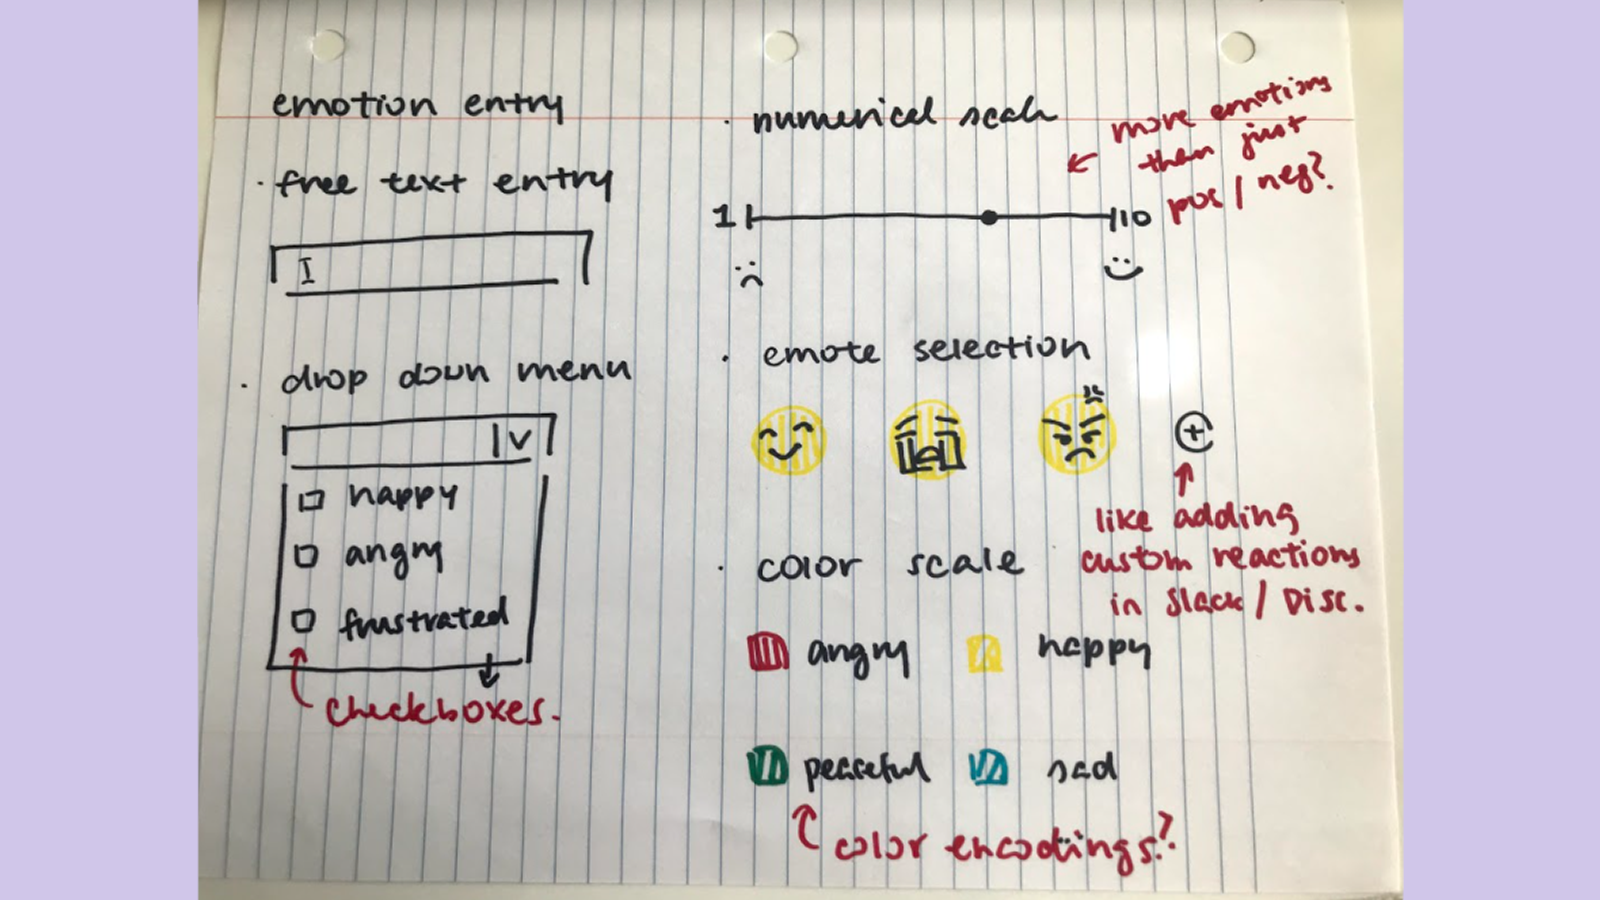 emotion entry
· free text entry
I
· drop down menu
V
happy
angry
frustrated
checkboxes.
· numerical scale
more emotions
than just
pos / neg?
1
10
· emote selection
+
like adding
custom reactions
in Slack / Disc.
· color scale
angry
happy
peaceful
sad
color encodings?